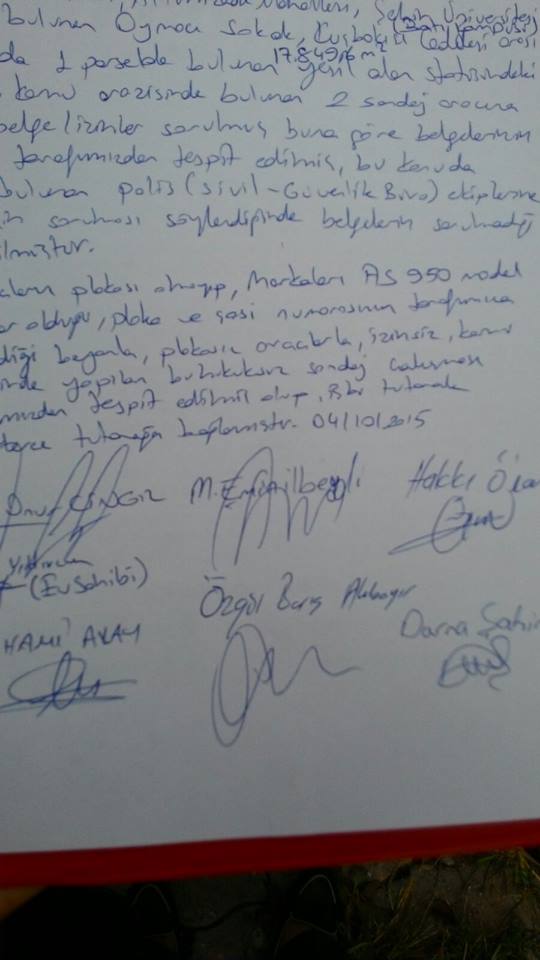 Mahallesi, Şehir Üniversitesi
bulunan Oymacı Sokak, Kuşbakışı Caddesi arası (Batı Kampüsü)
da 1 parselde bulunan 17.849,16 m² yeşil alan statüsündeki
kamu arazisinde bulunan 2 sondaj aracına
belge izinler sorulmuş buna göre belgelerinin
tarafımızdan tespit edilmiş, bu konuda
bulunan polis (sivil-Güvenlik Büro) ekiplerine
in sorulması söylendiğinde belgelerin sorulmadığı
ilmiştir.
ların plakası olmayıp, Markaları AS 950 model
ar olduğu, plaka ve şasi numarasının tarafımıza
diği beyanla, plakasız araçlarla, izinsiz, kamu
inde yapılan bu hukuksuz sondaj çalışması
mızdan tespit edilmiş olup, iş bu tutanak
tutanağa bağlanmıştır. 04/10/2015
Onur CİNGİZ M. Emin Hakkı
Yıldırım
(Ev Sahibi)
Özgür Barış
HAMİ AKAY
Darna Şahin